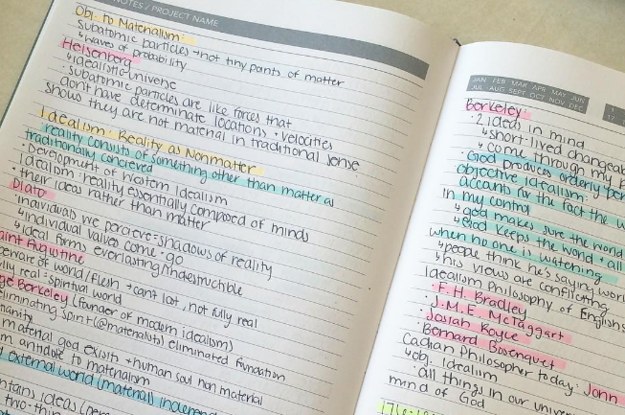 NOTES / PROJECT NAME
Obj. to Materialism:
subatomic particles → not tiny pants of matter
↳ waves of probability
Heisenberg
↳ idealistic universe
· subatomic particles are like forces that
don't have determinate locations + velocities
shows they are not material in traditional sense
Idealism: Reality as Nonmatter
reality consists of something other than matter as
traditionally conceived
· Development of Western Idealism
Idealism: reality essentially composed of minds
+ their ideas rather than matter
Plato
· individuals we perceive = shadows of reality
↳ individual values come + go
↳ ideal forms everlasting/indestructible
aint Augustine
of world/flesh → cant last, not fully real
lly real = spiritual world
ge Berkeley (founder of modern idealism)
eliminating spirit (@ materialists) eliminated foundation
manity
material god exists + human soul non material
m antidote to materialism
external world (material) independ
ntains ideas
two-thin
JAN FEB MAR APR MAY JUN
JUL AUG SEPT OCT NOV DEC
Berkeley
· 2 ideas in mind
↳ short-lived changeab
↳ come through my
God produces orderly
objective idealism:
accounts for the fact the w
in my control
↳ god makes sure the world
↳ God keeps the world + all
when no one is watching
↳ people think he's saying worl
↳ his views are conflicting
Idealism Philosophy of English s
· F.H. Bradley
· J.M.E. McTaggart
· Josiah Royce
· Bernard Bosenquet
Cadian Philosopher today: John
↳ obj. idealism
· all things in our univer
mind of God